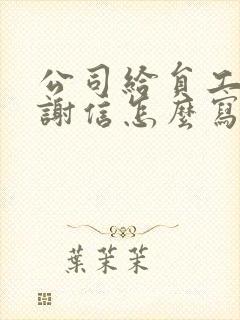 公司給員工
謝信怎麼寫
葉茉茉